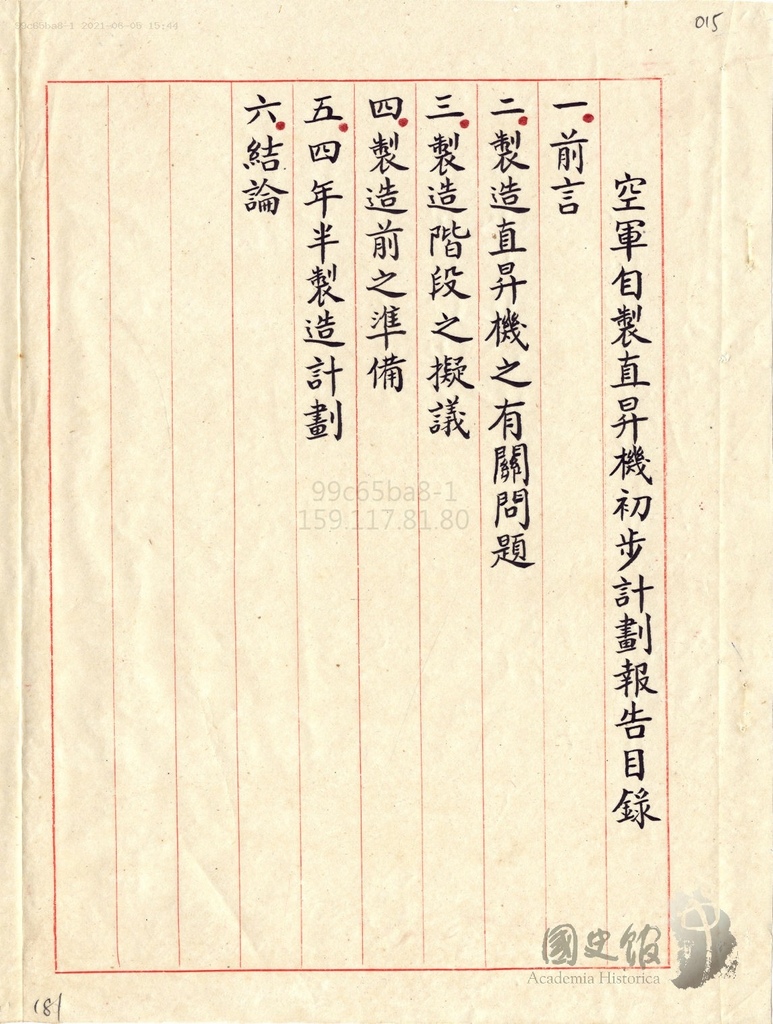 99c65ba8-1 2021-06-06 15:44
015
空軍自製直昇機初步計劃報告目錄
一.前言
二.製造直昇機之有關問題
三.製造階段之擬議
四.製造前之準備
五.四年半製造計劃
六.結論
99c65ba8-1
159.117.81.80
國史館
Academia Historica
181